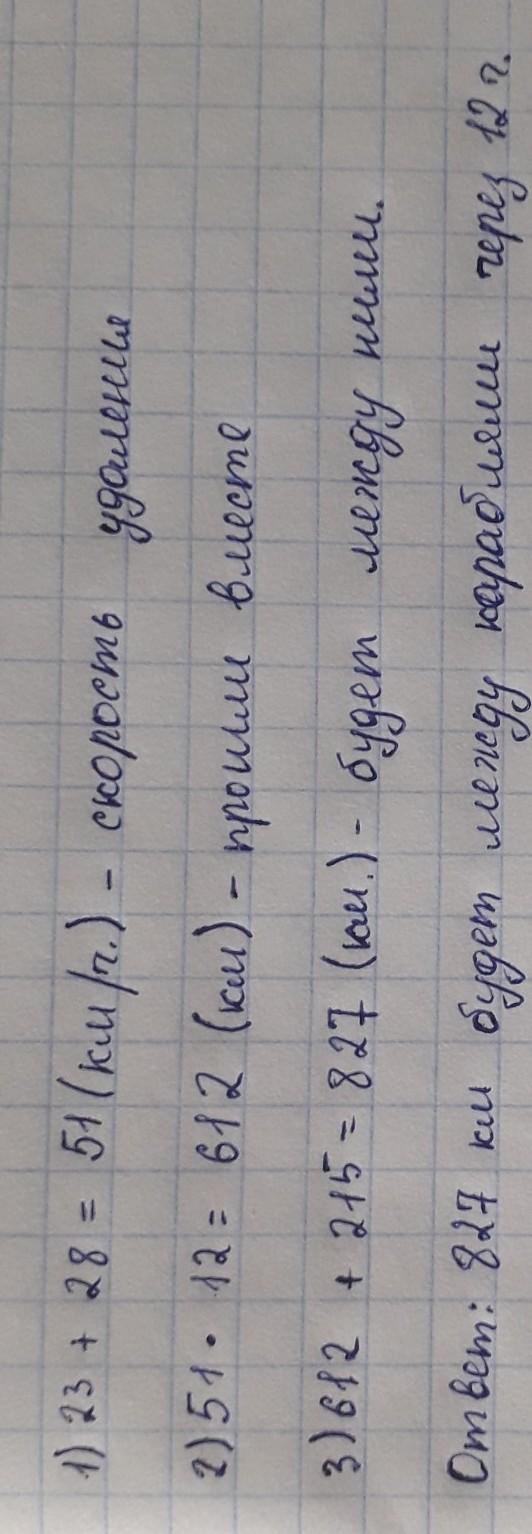 1) 23 + 28 = 51 (км/ч.) - скорость удаления
2) 51 · 12 = 612 (км) - прошли вместе
3) 612 + 215 = 827 (км.) - будет между ними.
Ответ: 827 км будет между караблями через 12 ч.